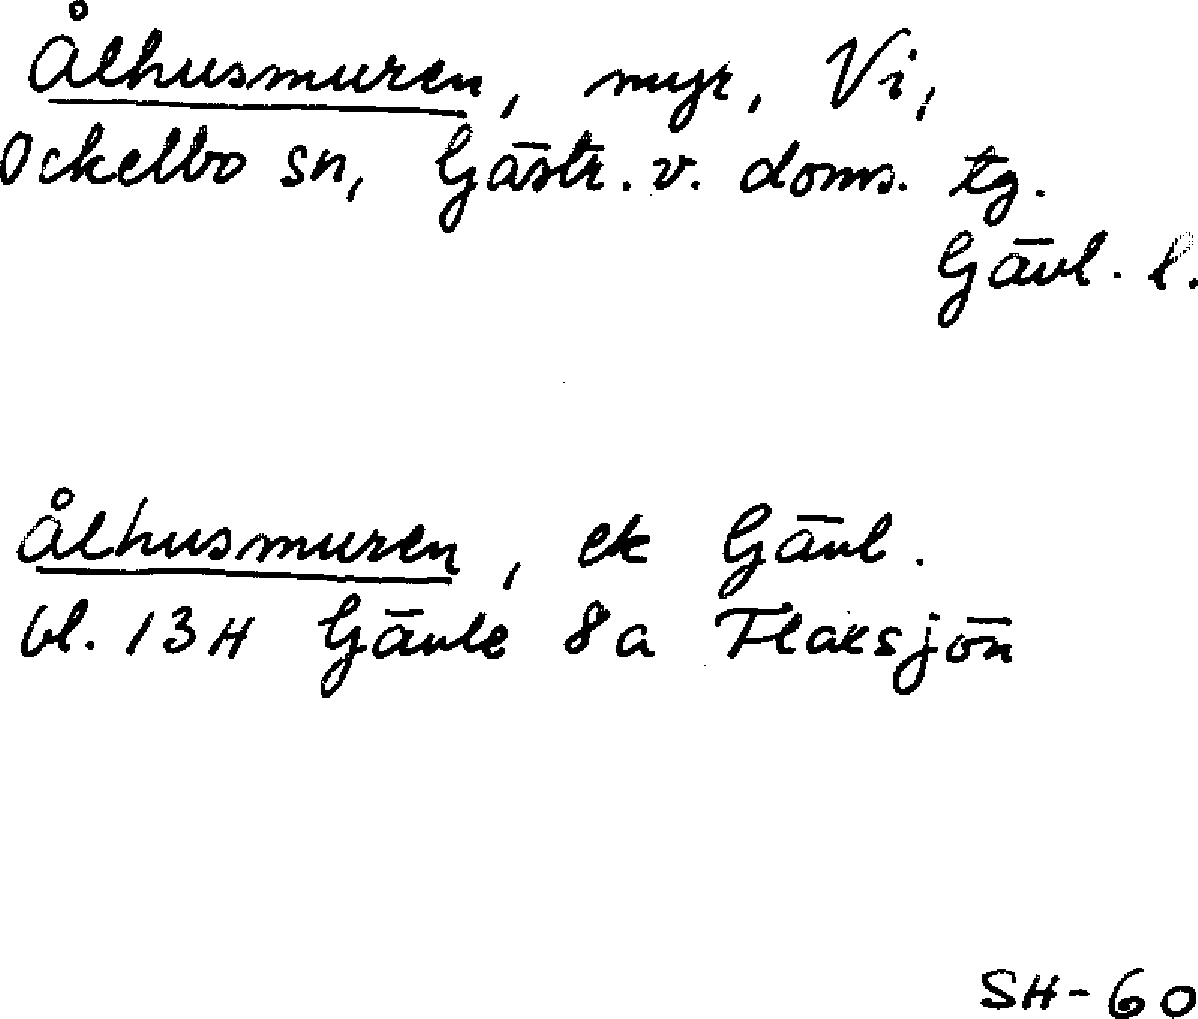 Ålhusmuren, myr, Vi,
Ockelbo sn, Gästr. v. doms. tg.
Gävl. l.
Ålhusmuren, ek Gävl.
bl. 13H Gävle 8a Flaksjön
SH-60